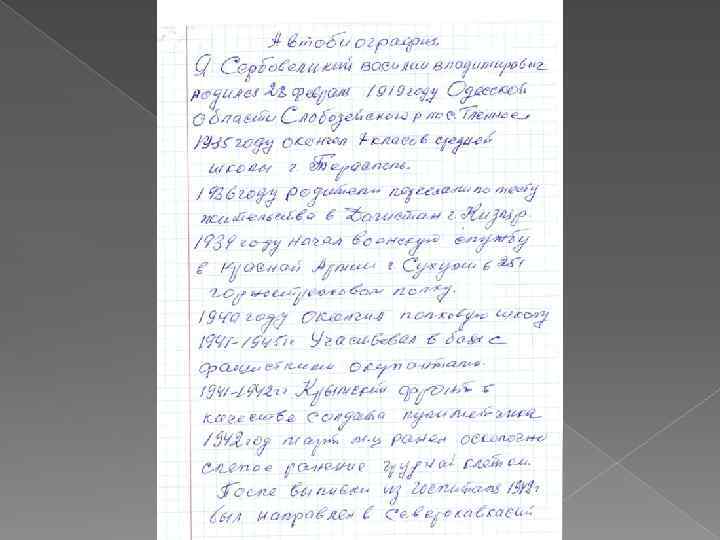 Автобиография
Я Сербовеликий Василий Владимирович
родился 23 февраля 1919 году Одесской
области Слободзейского р пос. Глиное
1935 году окончил 7 класов средней
школы г. Тераспопь.
1936 году родители переехали по месту
жительства в Дагистан г. Кизляр.
1939 году начал воинскую службу
в Красной Армии г. Сухуми в 251
горжестрелковом полку.
1940 году окончил полковую школу
1941-1945гг Учаситвовал в боях с
фашисткими окупантами.
1941-1942гг Крымский фронт в
качестве солдата пулиметчика
1942 год март м-ц ранен осколочно
слепое ранение грудной клетки.
После выписки из госпиталя 1942г
был направлен в Северокавкаский